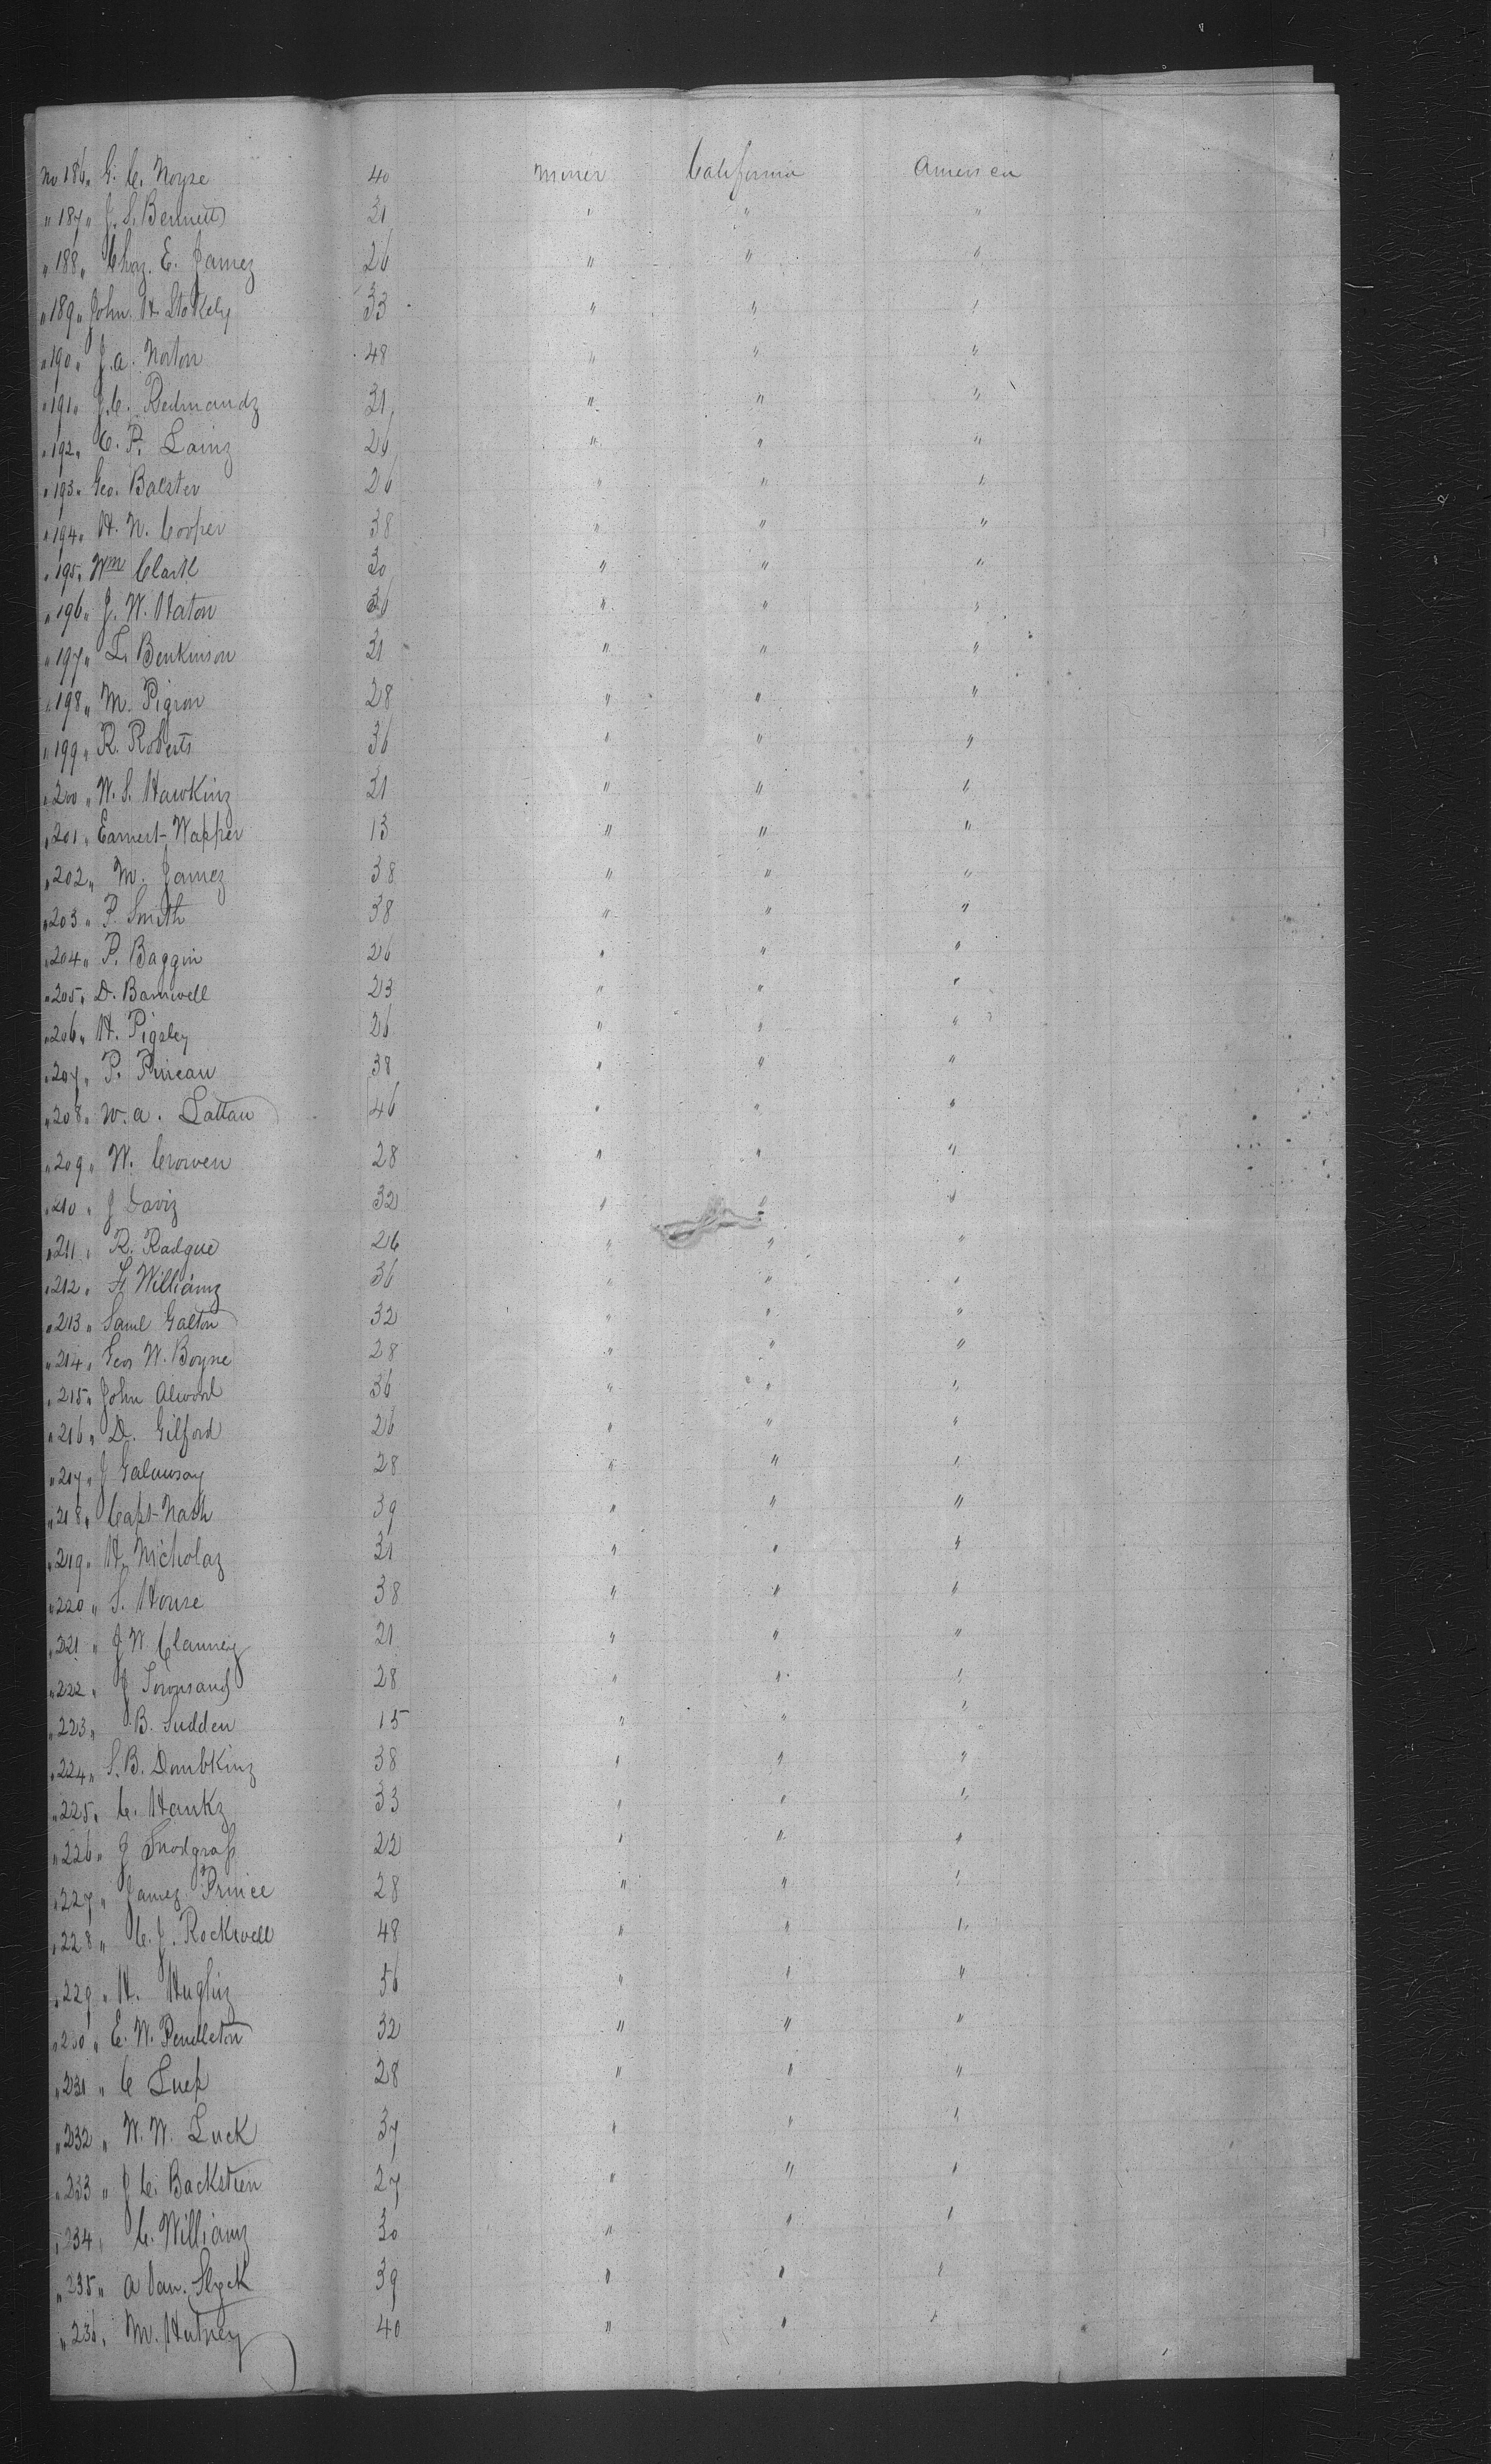 No 186 " G. C. Noyse 40 miner California American
" 187 " J. S. Bennett 21 " " "
" 188 " Chaz. E. Jamez 26 " " "
" 189 " John H. Stokely 33 " " "
" 190 " J. a. Norton 48 " " "
" 191 " J. C. Redmandz 31 " " "
" 192 " C. P. Lainz 26 " " "
" 193 " Geo. Balster 26 " " "
" 194 " H. N. Cooper 38 " " "
" 195 " Wm Clark 30 " " "
" 196 " J. W. Haton 36 " " "
" 197 " L. Benkinson 31 " " "
" 198 " M. Pigron 28 " " "
" 199 " R. Roberts 36 " " "
" 200 " W. S. Hawkinz 21 " " "
" 201 " Earnest Wapper 13 " " "
" 202 " M. Jamez 38 " " "
" 203 " P. Smith 38 " " "
" 204 " P. Baggin 26 " " "
" 205 " D. Barnwell 23 " " "
" 206 " H. Pigsley 26 " " "
" 207 " P. Puncan 38 " " "
" 208 " W. a. Lattau 46 " " "
" 209 " W. Crowen 28 " " "
" 210 " J Daviz 32 " " "
" 211 " R. Radgue 26 " " "
" 212 " Williamz 36 " " "
" 213 " Saml Galton 32 " " "
" 214 " Geo W. Boyne 28 " " "
" 215 " John Alwood 36 " " "
" 216 " D. Gilford 26 " " "
" 217 " J Galawsay 28 " " "
" 218 " Capt Nash 39 " " "
" 219 " H. Nicholaz 31 " " "
" 220 " S. House 38 " " "
" 221 " J W Clanney 21 " " "
" 222 " J Townsand 28 " " "
" 223 " B. Sudden 15 " " "
" 224 " S. B. Dombkinz 38 " " "
" 225 " C. Hankz 33 " " "
" 226 " J Snodgrass 22 " " "
" 227 " Jamez Prince 28 " " "
" 228 " C. J. Rockwell 48 " " "
" 229 " H. Hughz 56 " " "
" 230 " E. W. Pendleton 32 " " "
" 231 " C Luck 28 " " "
" 232 " W. W. Luck 37 " " "
" 233 " J C. Backstien 27 " " "
" 234 " C. Williamz 30 " " "
" 235 " A Van. Slyck 39 " " "
" 236 " M. Hutney 40 " " "